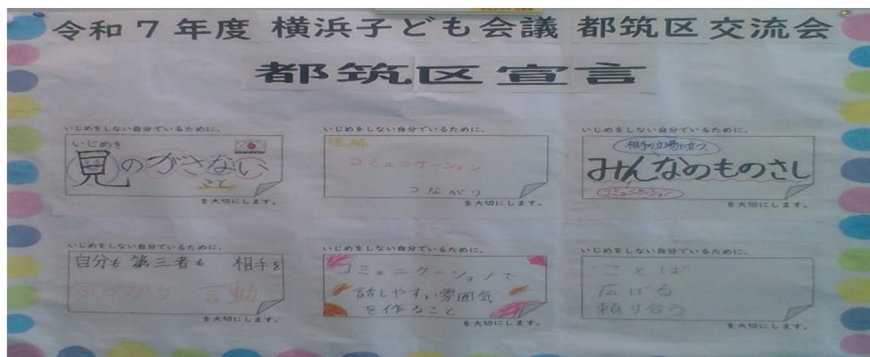 令和7年度 横浜子ども会議 都筑区交流会
都筑区宣言
いじめをしない自分でいるために、
いじめを
見のがさない
こと
を大切にします。
いじめをしない自分でいるために、
理解
コミュニケーション
つながり
を大切にします。
いじめをしない自分でいるために、
相手の立場に立つ
みんなのものさし
コミュニケーション
を大切にします。
いじめをしない自分でいるために、
自分も 第三者も 相手を
言動
を大切にします。
いじめをしない自分でいるために、
コミュニケーションで
話しやすい雰囲気
を作ること
を大切にします。
いじめをしない自分でいるために、
ことば
広げる
頼り合う
を大切にします。